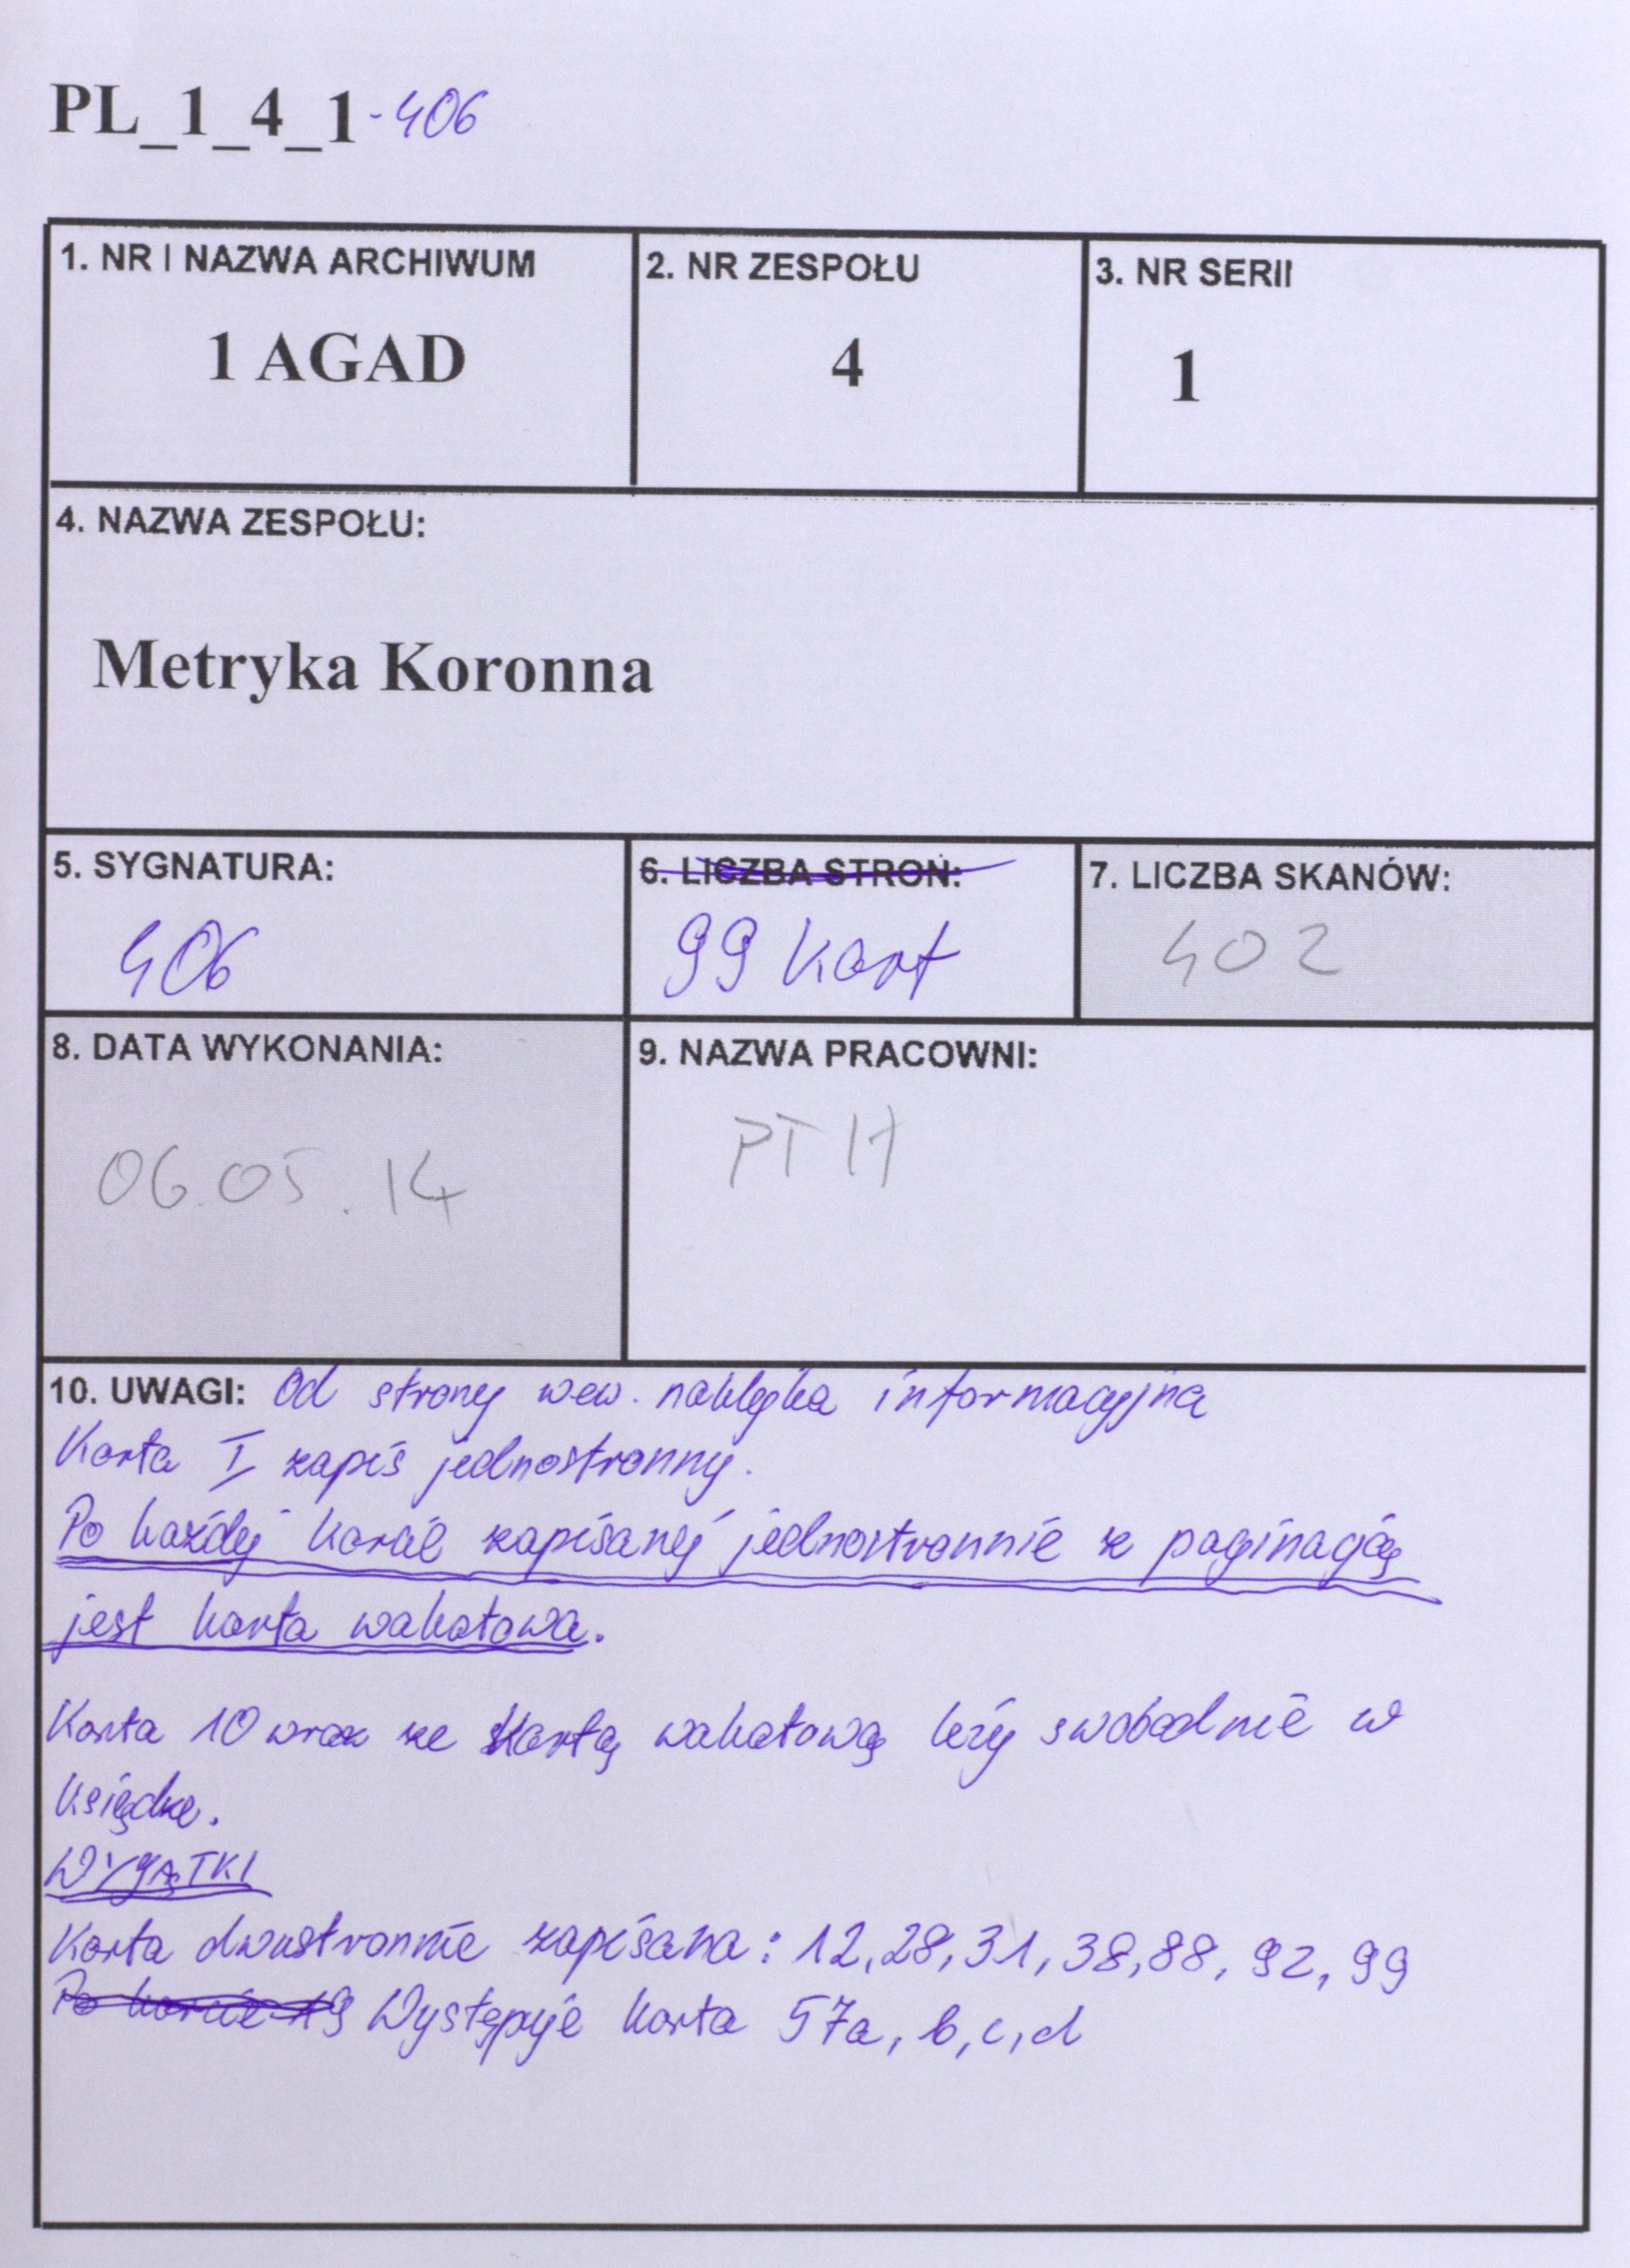 PL_1_4_1-406
1. NR I NAZWA ARCHIWUM
1 AGAD
2. NR ZESPOŁU
4
3. NR SERII
1
4. NAZWA ZESPOŁU:
Metryka Koronna
5. SYGNATURA:
406
6. LICZBA STRON:
99 kart
7. LICZBA SKANÓW:
402
8. DATA WYKONANIA:
06.05.14
9. NAZWA PRACOWNI:
PT 17
10. UWAGI: Od strony wew. naklejka informacyjna
Karta I zapis jednostronny.
Po każdej karcie zapisanej jednostronnie z paginacją
jest karta wakatowa.
Karta 10 wraz ze kartą wakatową leży swobodnie w
książdce.
WYJĄTKI
Karta dwustronnie zapisana: 12, 28, 31, 38, 88, 92, 99
Po karcie 19 Występuje karta 57a, b, c, d